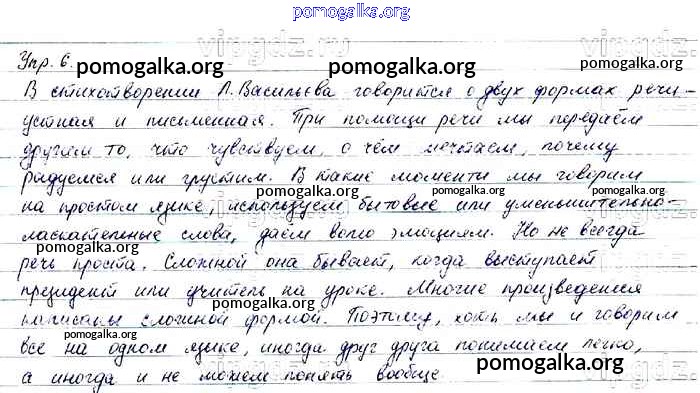 pomogalka.org
Упр. 6.
pomogalka.org
pomogalka.org
В стихотворении Л. Васильева говорится о двух формах речи -
устная и письменная. При помощи речи мы передаём
другим то, что чувствуем, о чём мечтаем, почему
радуемся или грустим. В такие моменти мы говорим
pomogalka.org pomogalka.org pomogalka.org
на простом языке, используем бытовые или уменьшительно-
ласкательные слова, даём волю эмоциям. Но не всегда
pomogalka.org
речь проста. Сложной она бывает, когда выступает
президент или учитель на уроке. Многие произведения
написаны сложной формой. Поэтому, хоть мы и говорим
pomogalka.org
все на одном языке, иногда друг друга понимаем легко,
pomogalka.org
а иногда и не можем понять вообще